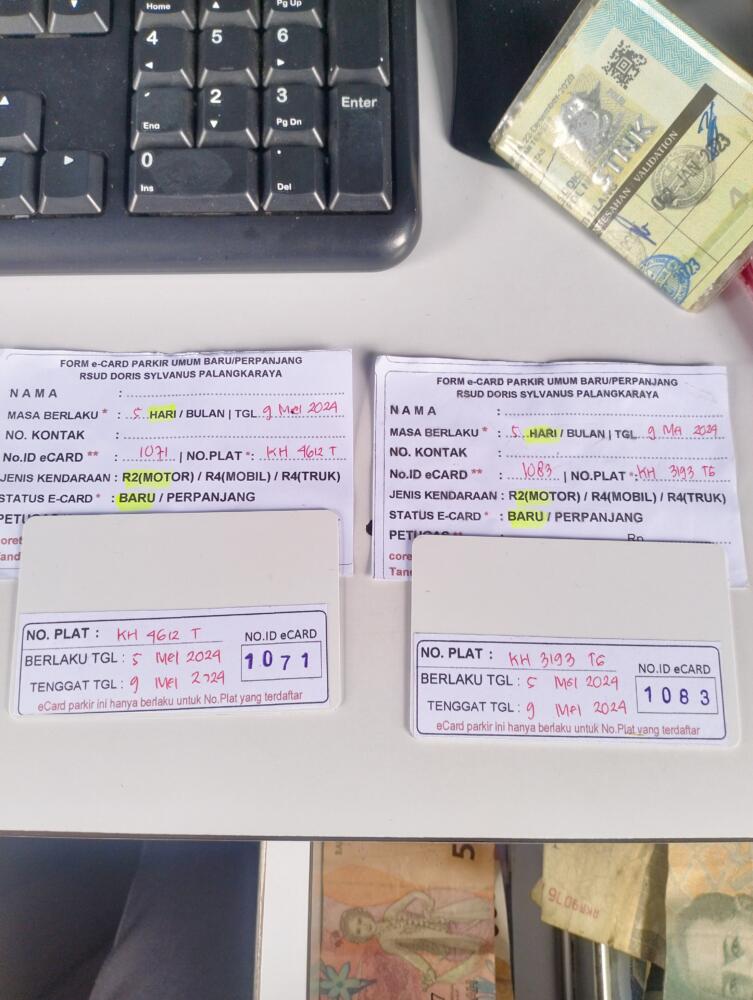 Home
Pg Up
4
5
6
End
2
3
Pg Dn
Enter
0
Ins
.
Del
STNK
PENGESAHAN VALIDATION
JAN 2023
FORM e-CARD PARKIR UMUM BARU/PERPANJANG
RSUD DORIS SYLVANUS PALANGKARAYA
NAMA :
MASA BERLAKU * : 5 HARI / BULAN | TGL 9 Mei 2024
NO. KONTAK :
No.ID eCARD ** : 1071 | NO.PLAT *: KH 4612 T
JENIS KENDARAAN : R2(MOTOR) / R4(MOBIL) / R4(TRUK)
STATUS E-CARD * : BARU / PERPANJANG
NO. PLAT : KH 4612 T
BERLAKU TGL : 5 MEI 2024
TENGGAT TGL : 9 MEI 2024
NO.ID eCARD
1071
eCard parkir ini hanya berlaku untuk No.Plat yang terdaftar
FORM e-CARD PARKIR UMUM BARU/PERPANJANG
RSUD DORIS SYLVANUS PALANGKARAYA
NAMA :
MASA BERLAKU * : 5 HARI / BULAN | TGL 9 Mei 2024
NO. KONTAK :
No.ID eCARD ** : 1083 | NO.PLAT *: KH 3193 TG
JENIS KENDARAAN : R2(MOTOR) / R4(MOBIL) / R4(TRUK)
STATUS E-CARD * : BARU / PERPANJANG
PETUGAS ** Rp
NO. PLAT : KH 3193 TG
BERLAKU TGL : 5 MEI 2024
TENGGAT TGL : 9 MEI 2024
NO.ID eCARD
1083
eCard parkir ini hanya berlaku untuk No.Plat yang terdaftar
5